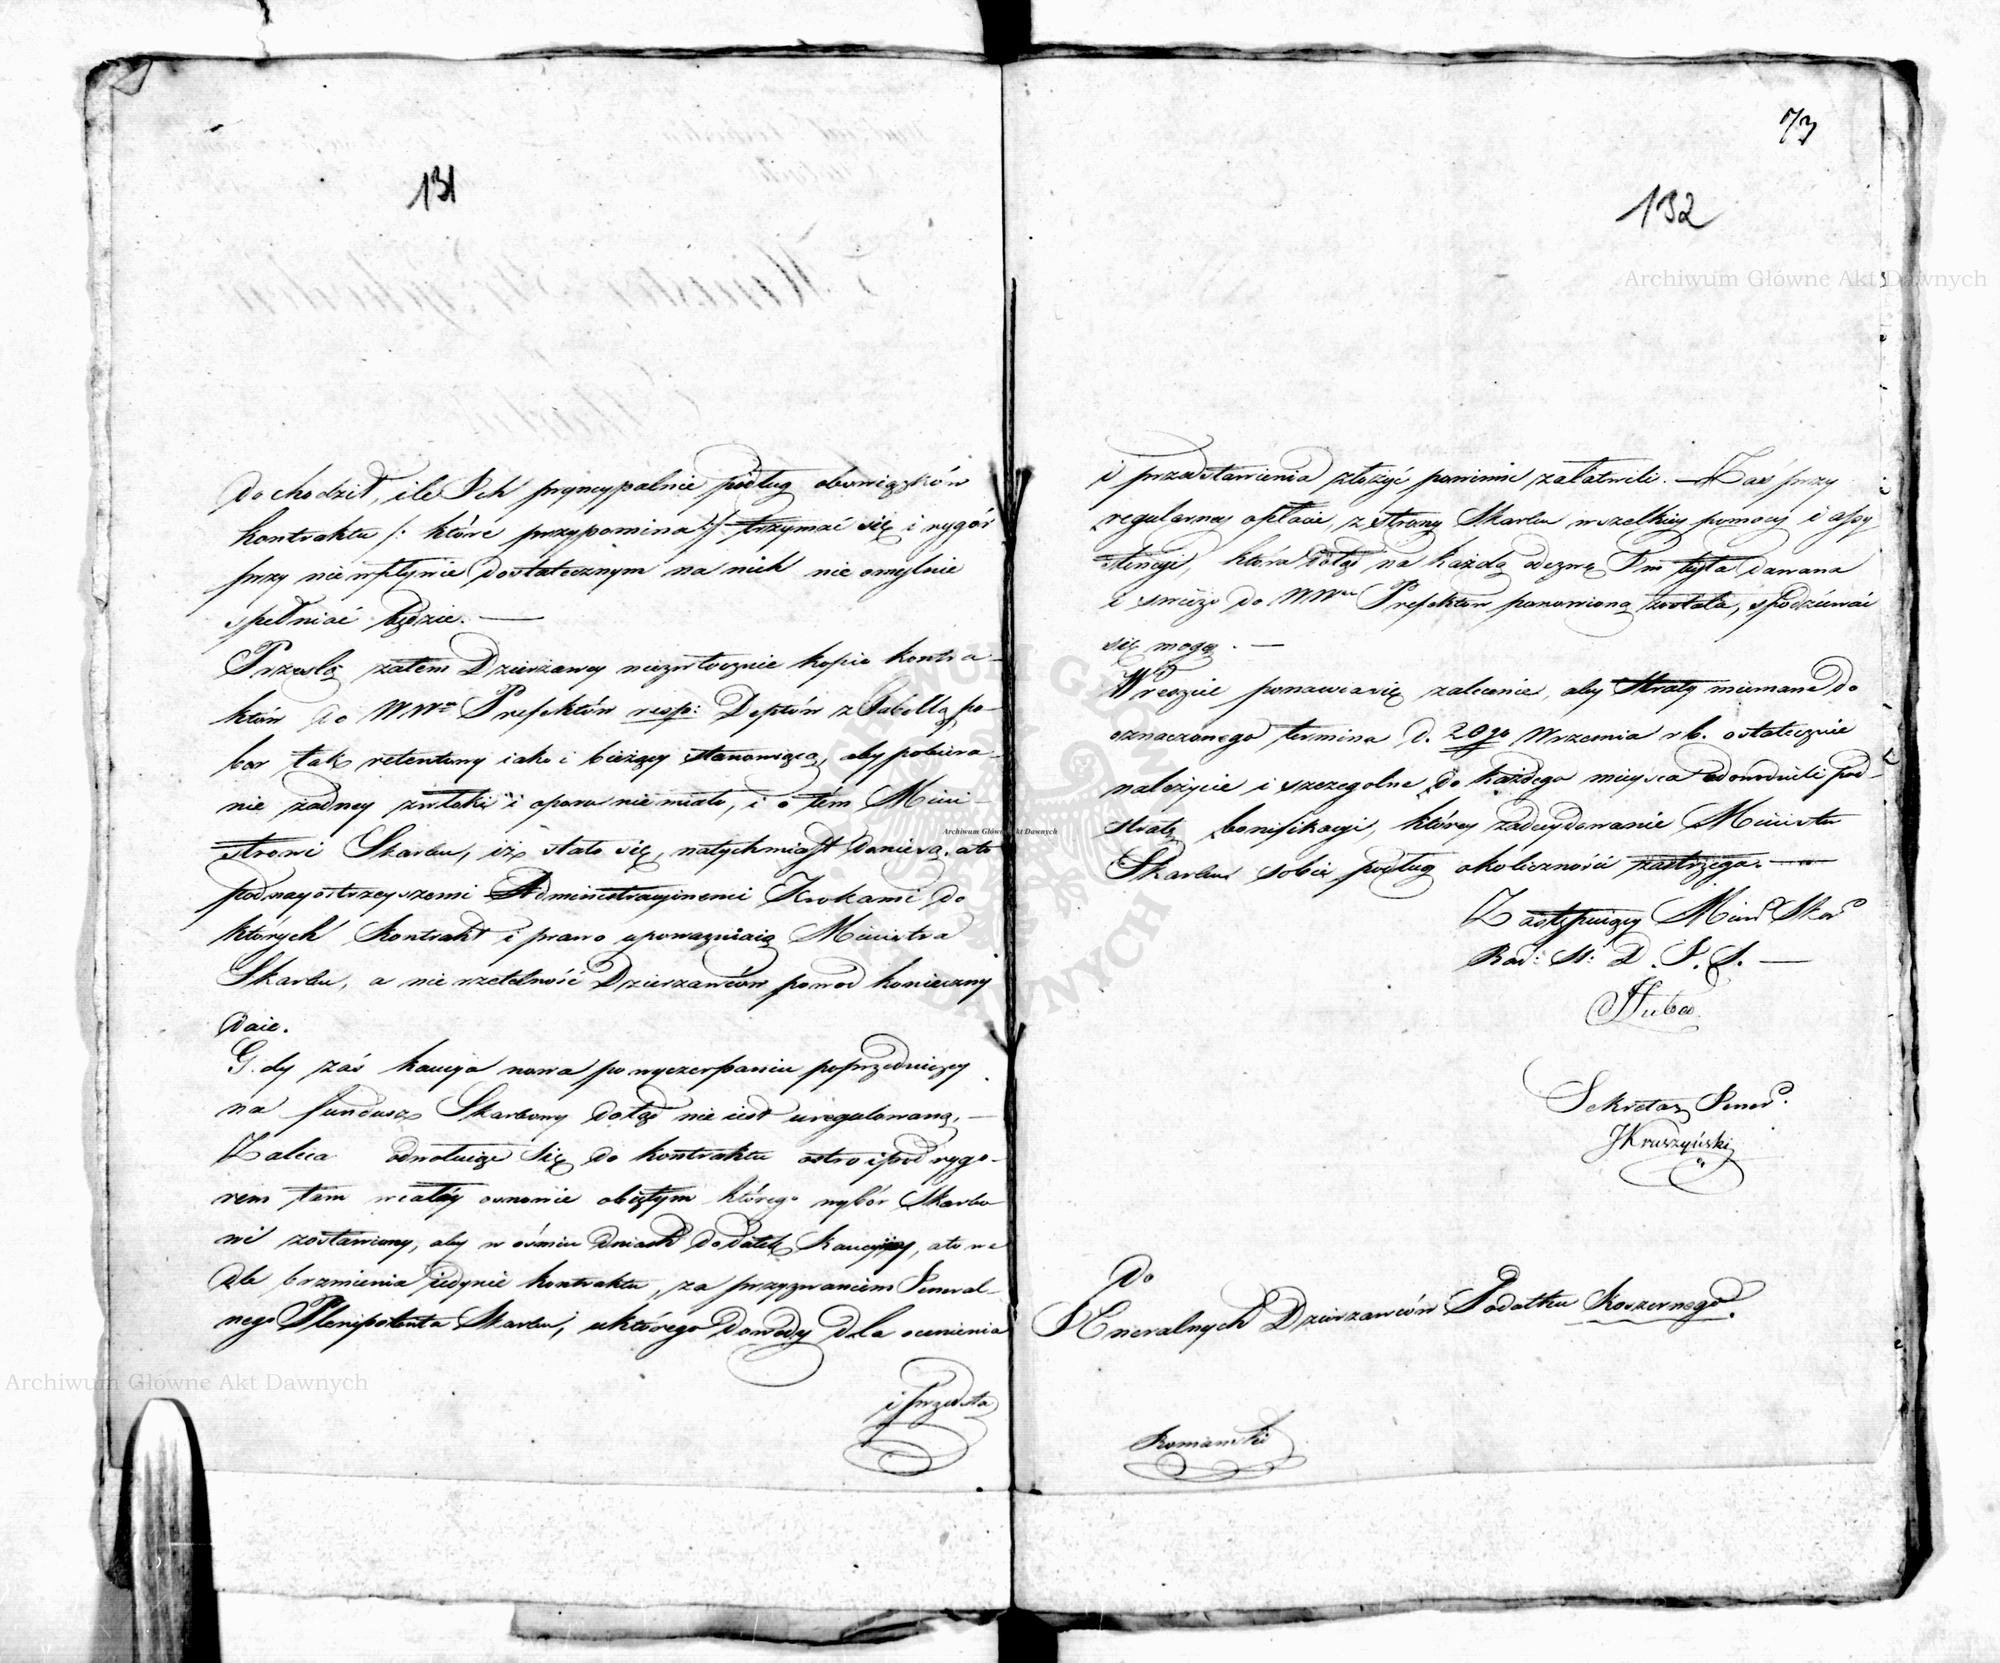 131
dochodził, ile Ich pryncypalnie podług obowiązków
kontraktu /: które przypomina :/ trzymać się i rygór
przy niewpłynie dostatecznym na nich nie omylnie
spełniać będzie. —
Prześlą zatem Dzierżawcy niezwłocznie kopie kontra-
któw do WWch Prefektów resp: Deptów z Tabellą, po-
bor tak retentowy iako i bieżący stanowiącą, aby pobiera-
nie żadney zwłoki i oporu nie miało, i o tém Mini-
strowi Skarbu, iż stało się, natychmiast doniosą, a to
pod nayostrzeyszemi Administracyinemi Krokami do
których Kontrakt i prawo upoważniaią Ministra
Skarbu, a nierzetelność Dzierzawców powod konieczny
daie.
Gdy zaś kaucya nowa po wyczerpaniu poprzedniczey
na fundusz Skarbowy dotąd nie iest uregulowaną, —
Zaleca odwołuiąc się do kontraktu ostro i pod rygo-
rem tam w całéy osnowie obiętym którego wybór Skarbo-
wi zostawiony, aby w ośmiu dniach dodatek Kaucyiny, a to we
dle brzmienia iedynie kontraktu, za przyzwaniem General-
nego Plenipotenta Skarbu, u którego dowody dla ocenienia
i przedsta
73
132
i przedstawienia złożyć powinni załatwili. — Zaś przy
regularney opłacie, z strony Skarbu wszelkiey pomocy i assy
stencyi, która dotąd na każdą odezwę Im była dawana
i swieżo do WWch Prefektow ponowioną została, spodziewać
się mogą. —
Wreszcie ponawia się zalecenie, aby straty mniemane do
oznaczonego termina d. 20go Września r. b. ostatecznie
należycie i szczegolnie do każdego mieysca udowodnili pod
stratą bonifikacyi, którey zadecydowanie Minister
Skarbu sobie podług okoliczności zastrzega. —
Zastępuiący Minra Skar
Rad: St: D. J. S. —
Hube
Sekretarz Gener.
JKruszyński
Do
Generalnych Dzierzawców Podatku Koszernego.
Romanski
Archiwum Główne Akt Dawnych
Archiwum Główne Akt Dawnych
Archiwum Główne Akt Dawnych